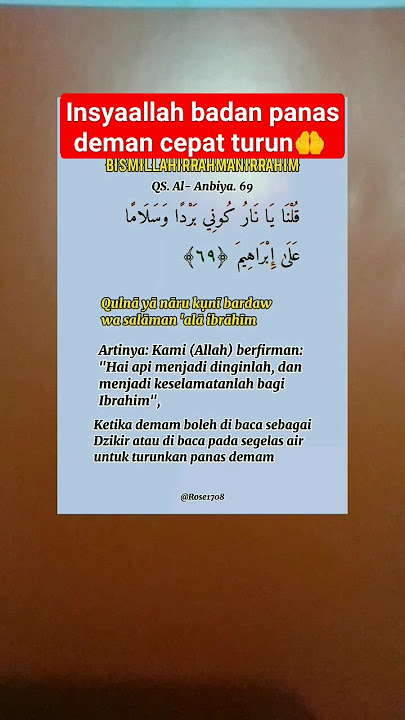 Insyaallah badan panas
deman cepat turun🤲
BISMILLAHIRRAHMANIRRAHIM
QS. Al- Anbiya. 69
قُلْنَا يَا نَارُ كُونِي بَرْدًا وَسَلَامًا
عَلَىٰ إِبْرَاهِيمَ ﴿٦٩﴾
Qulnā yā nāru kụnī bardaw
wa salāman 'alā ibrāhīm
Artinya: Kami (Allah) berfirman:
"Hai api menjadi dinginlah, dan
menjadi keselamatanlah bagi
Ibrahim",
Ketika demam boleh di baca sebagai
Dzikir atau di baca pada segelas air
untuk turunkan panas demam
@Rose1708